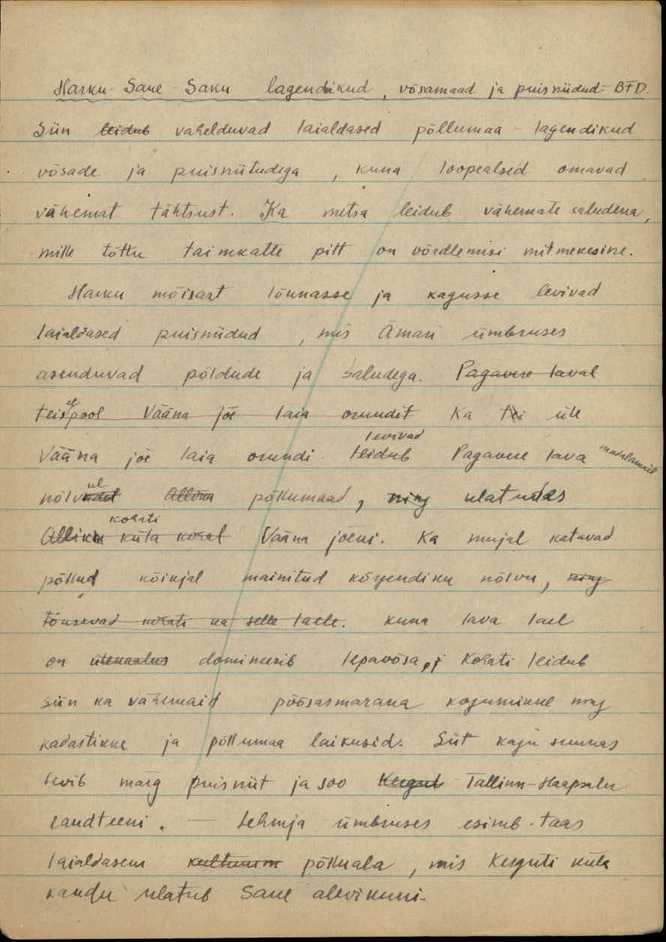 Harku - Saue - Saku lagendikud, võsamaad ja puisniidud - BFD.
Siin leidub vahelduvad laialdased põllumaa - lagendikud
võsade ja puisniitudega, kuna loopealsed omavad
vähemat tähtsust. Ka metsa leidub vähemate saludena,
mille tõttu taimkatte pilt on võrdlemisi mitmekesine.
Harku mõisast lõunasse ja kagusse levivad
laialdased puisniidud, mis Ämari ümbruses
asenduvad põldude ja saludega. Pagavere laval
teispool Vääna jõe laia orundit Ka üle
levivad
Vääna jõe laia orundi leidub Pagavere lava
nõlvul põllumaad, ning ulatudes
kohati
küla kohal Vääna jõeni. Ka mujal katavad
põllud kõikjal mainitud kõrgendiku nõlvu, ning
tõusevad kohati ka selle laele. kuna lava lael
on dominerib lepavõsa, Kohati leidub
siin ka vähemaid põõsasmarana kogumikke ning
kadastikke ja põllumaa laikusid. Siit kagu suunas
levib märg puisniit ja soo Tallinn-Haapsalu
raudteeni. — Lehmja ümbruses esineb taas
laialdasem põlluala, mis küla
kaudu ulatub Saue alevikuni.